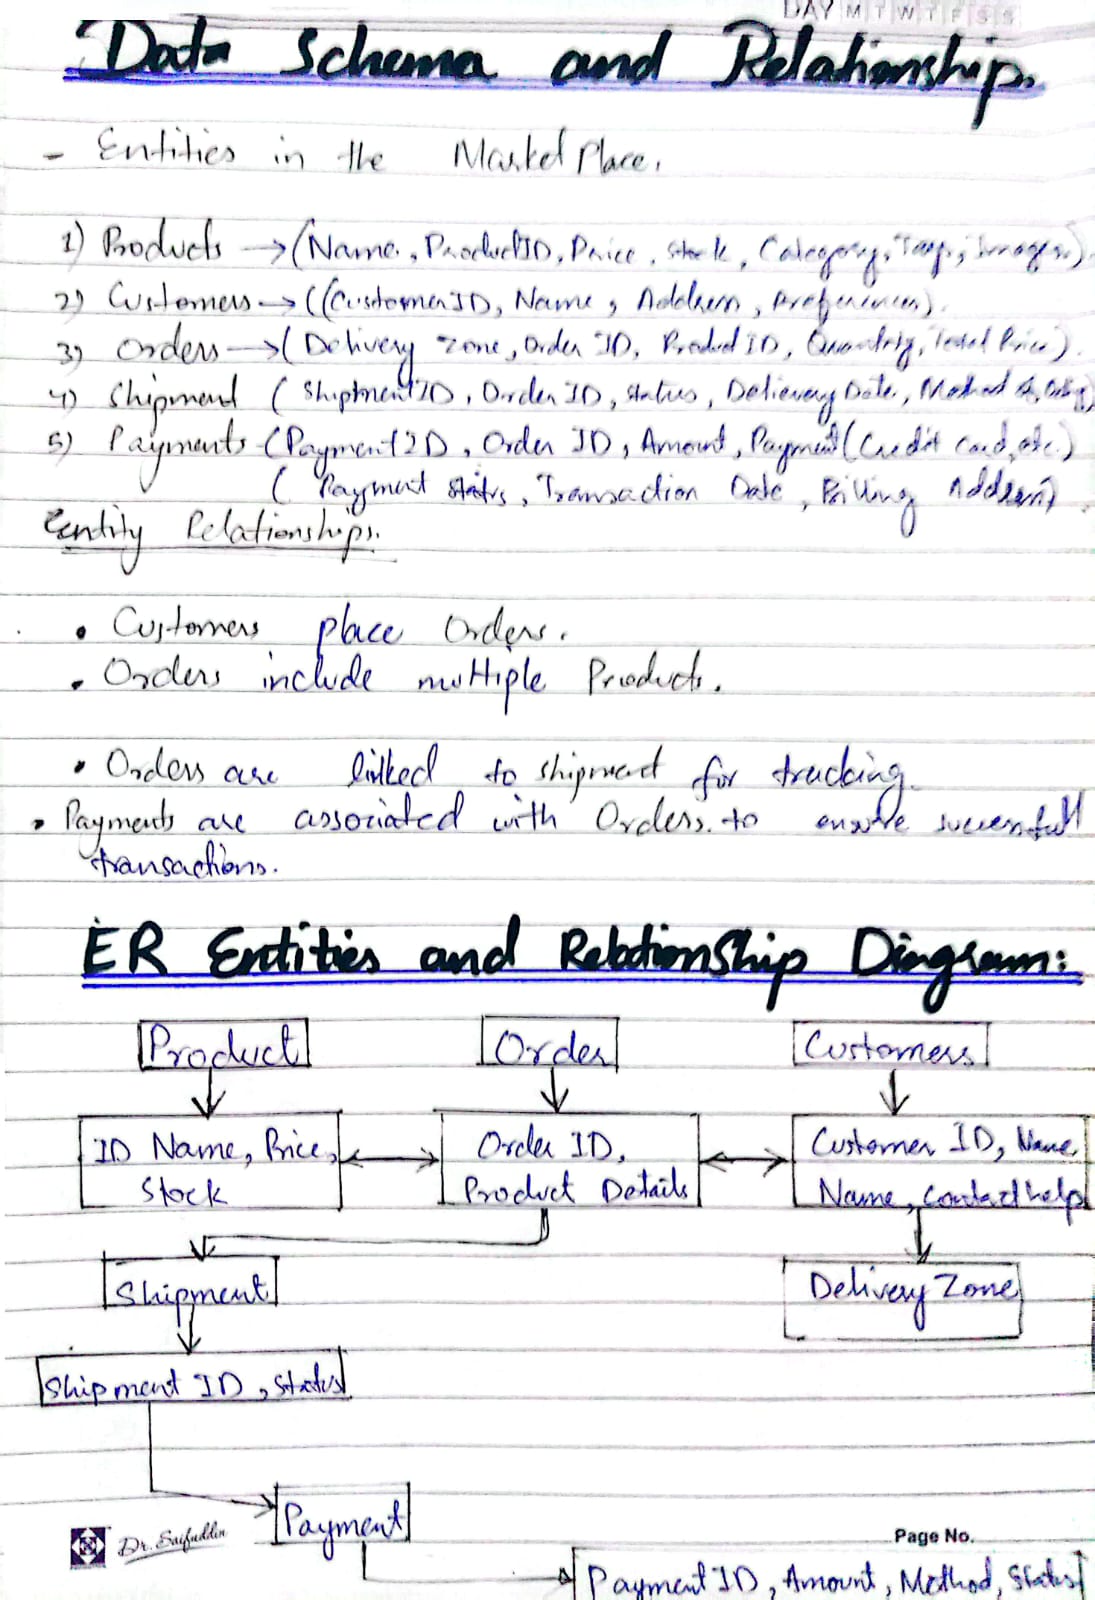 DAY M T W T F S S
Data Schema and Relationship.
- Entities in the Market Place.
1) Products → (Name, ProductID, Price, Stock, Category, Tags, Images).
2) Customers → ((CustomerID, Name, Address, Preferences).
3) Orders → (Delivery Zone, Order ID, Product ID, Quantity, Total Price).
4) Shipment (ShiptmentID, Order ID, Status, Delievery Date, Method
5) Payments - (PaymentID, Order ID, Amount, Payment (Credit Card, etc.)
( Payment Status, Transaction Date, Billing Address)
Entity Relationships.
• Customers place Orders.
• Orders include multiple Products.
• Orders are linked to shipment for tracking.
• Payments are associated with Orders. to ensure successfull
transactions.
ER Entities and Relationship Diagram:
Product Order Customers
ID Name, Price, Order ID, Customer ID, Name,
Stock Product Details Name, Contact help
Shipment Delivery Zone
Shipment ID, Status
Payment
Dr. Saifuddin Page No.
Payment ID, Amount, Method, Status